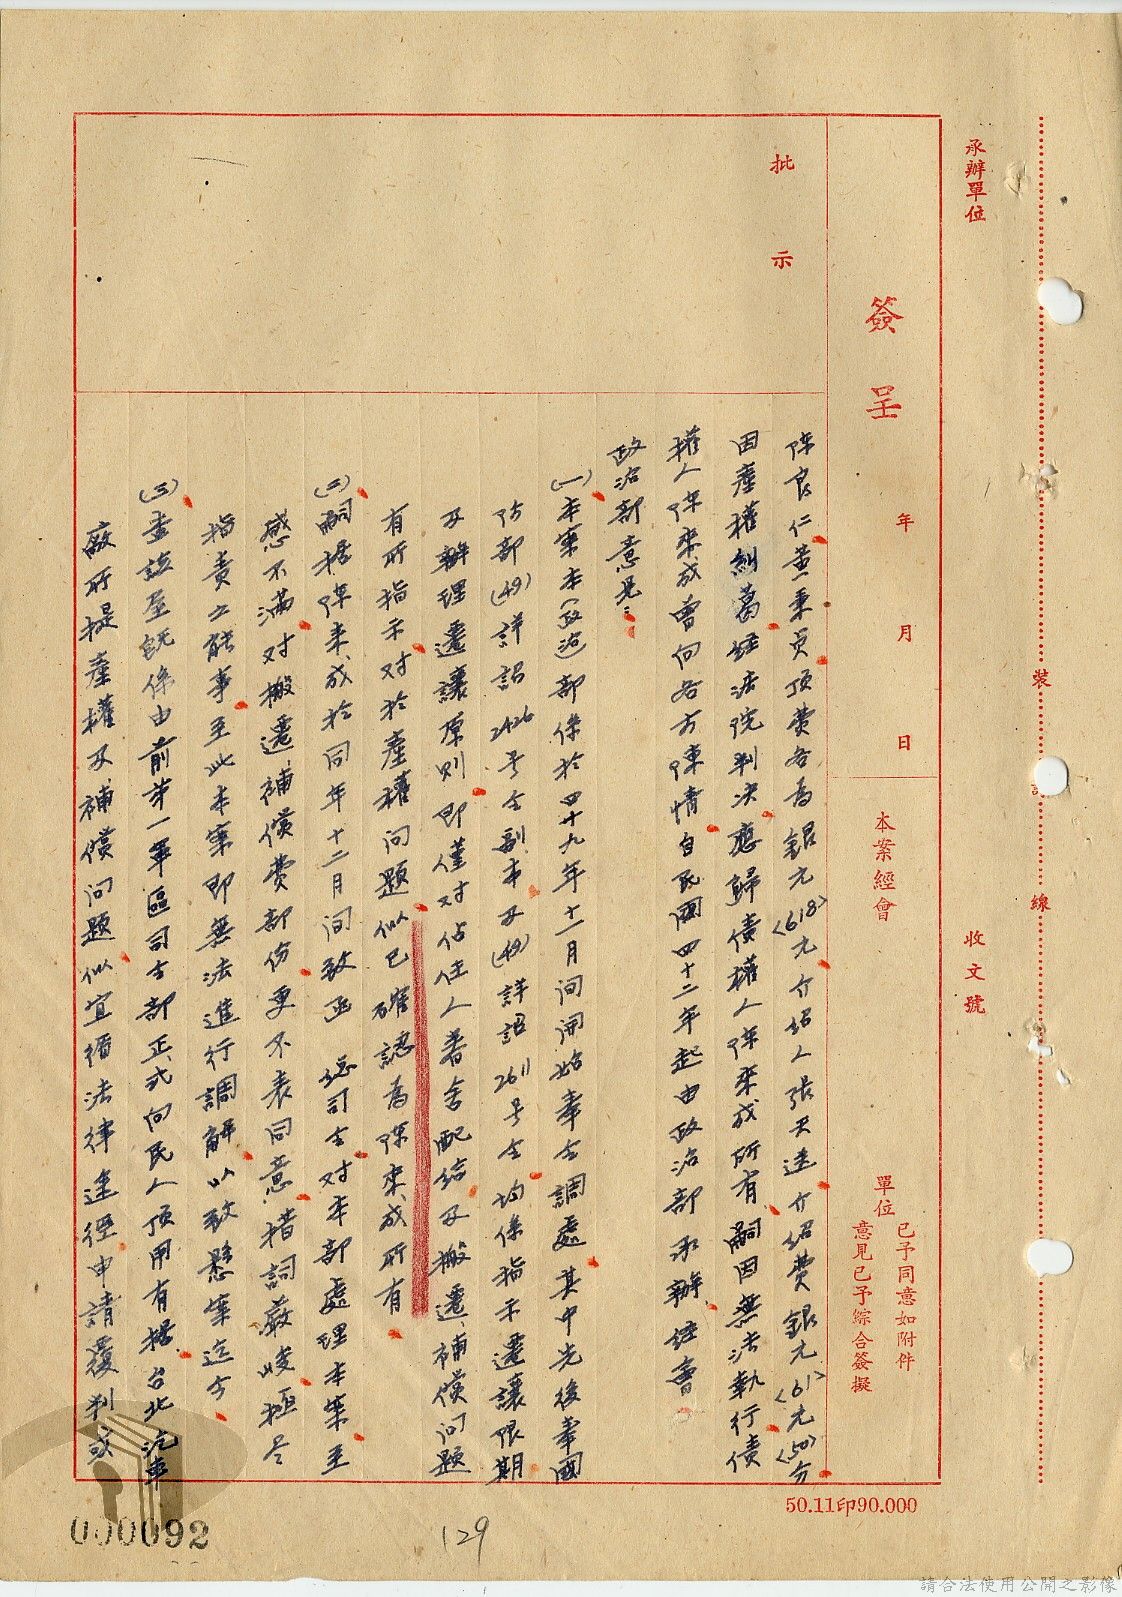 承辦單位
收文號
裝
訂
線
簽呈
年 月 日
本案經會
單位
已予同意如附件
意見已予綜合簽擬
批示
陳良仁黃秉貞頂費各為銀元<618>元介紹人張天送介紹費銀元<61>元<50>分
因產權糾葛經法院判決應歸債權人陳來成所有嗣因無法執行債
權人陳來成曾向各方陳情自民國四十二年起由政治部承辦經會
政治部意見:
(一)本案本(政治)部係於四十九年十一月间開始奉令調處其中先後奉國
防部(49)詳詔2426号令副本及(49)詳詔2611号令均係指示遷讓限期
及辦理遷讓原則即僅对佔住人眷舍配給及搬遷補償问題
有所指示对於產權问題似已確認為陳來成所有
(二)嗣據陳來成於同年十二月间致函 總司令对本部處理本案至
感不滿对搬遷補償費部份更不表同意措詞嚴峻極尽
指責之能事至此本案即無法進行調解以致懸案迄今
(三)查該屋既係由前第一軍區司令部正式向民人頂用有據台北汽車
廠所提產權及補償问題似宜循法律途徑申請覆判或
50.11印90.000
000092
129
請合法使用公開之影像